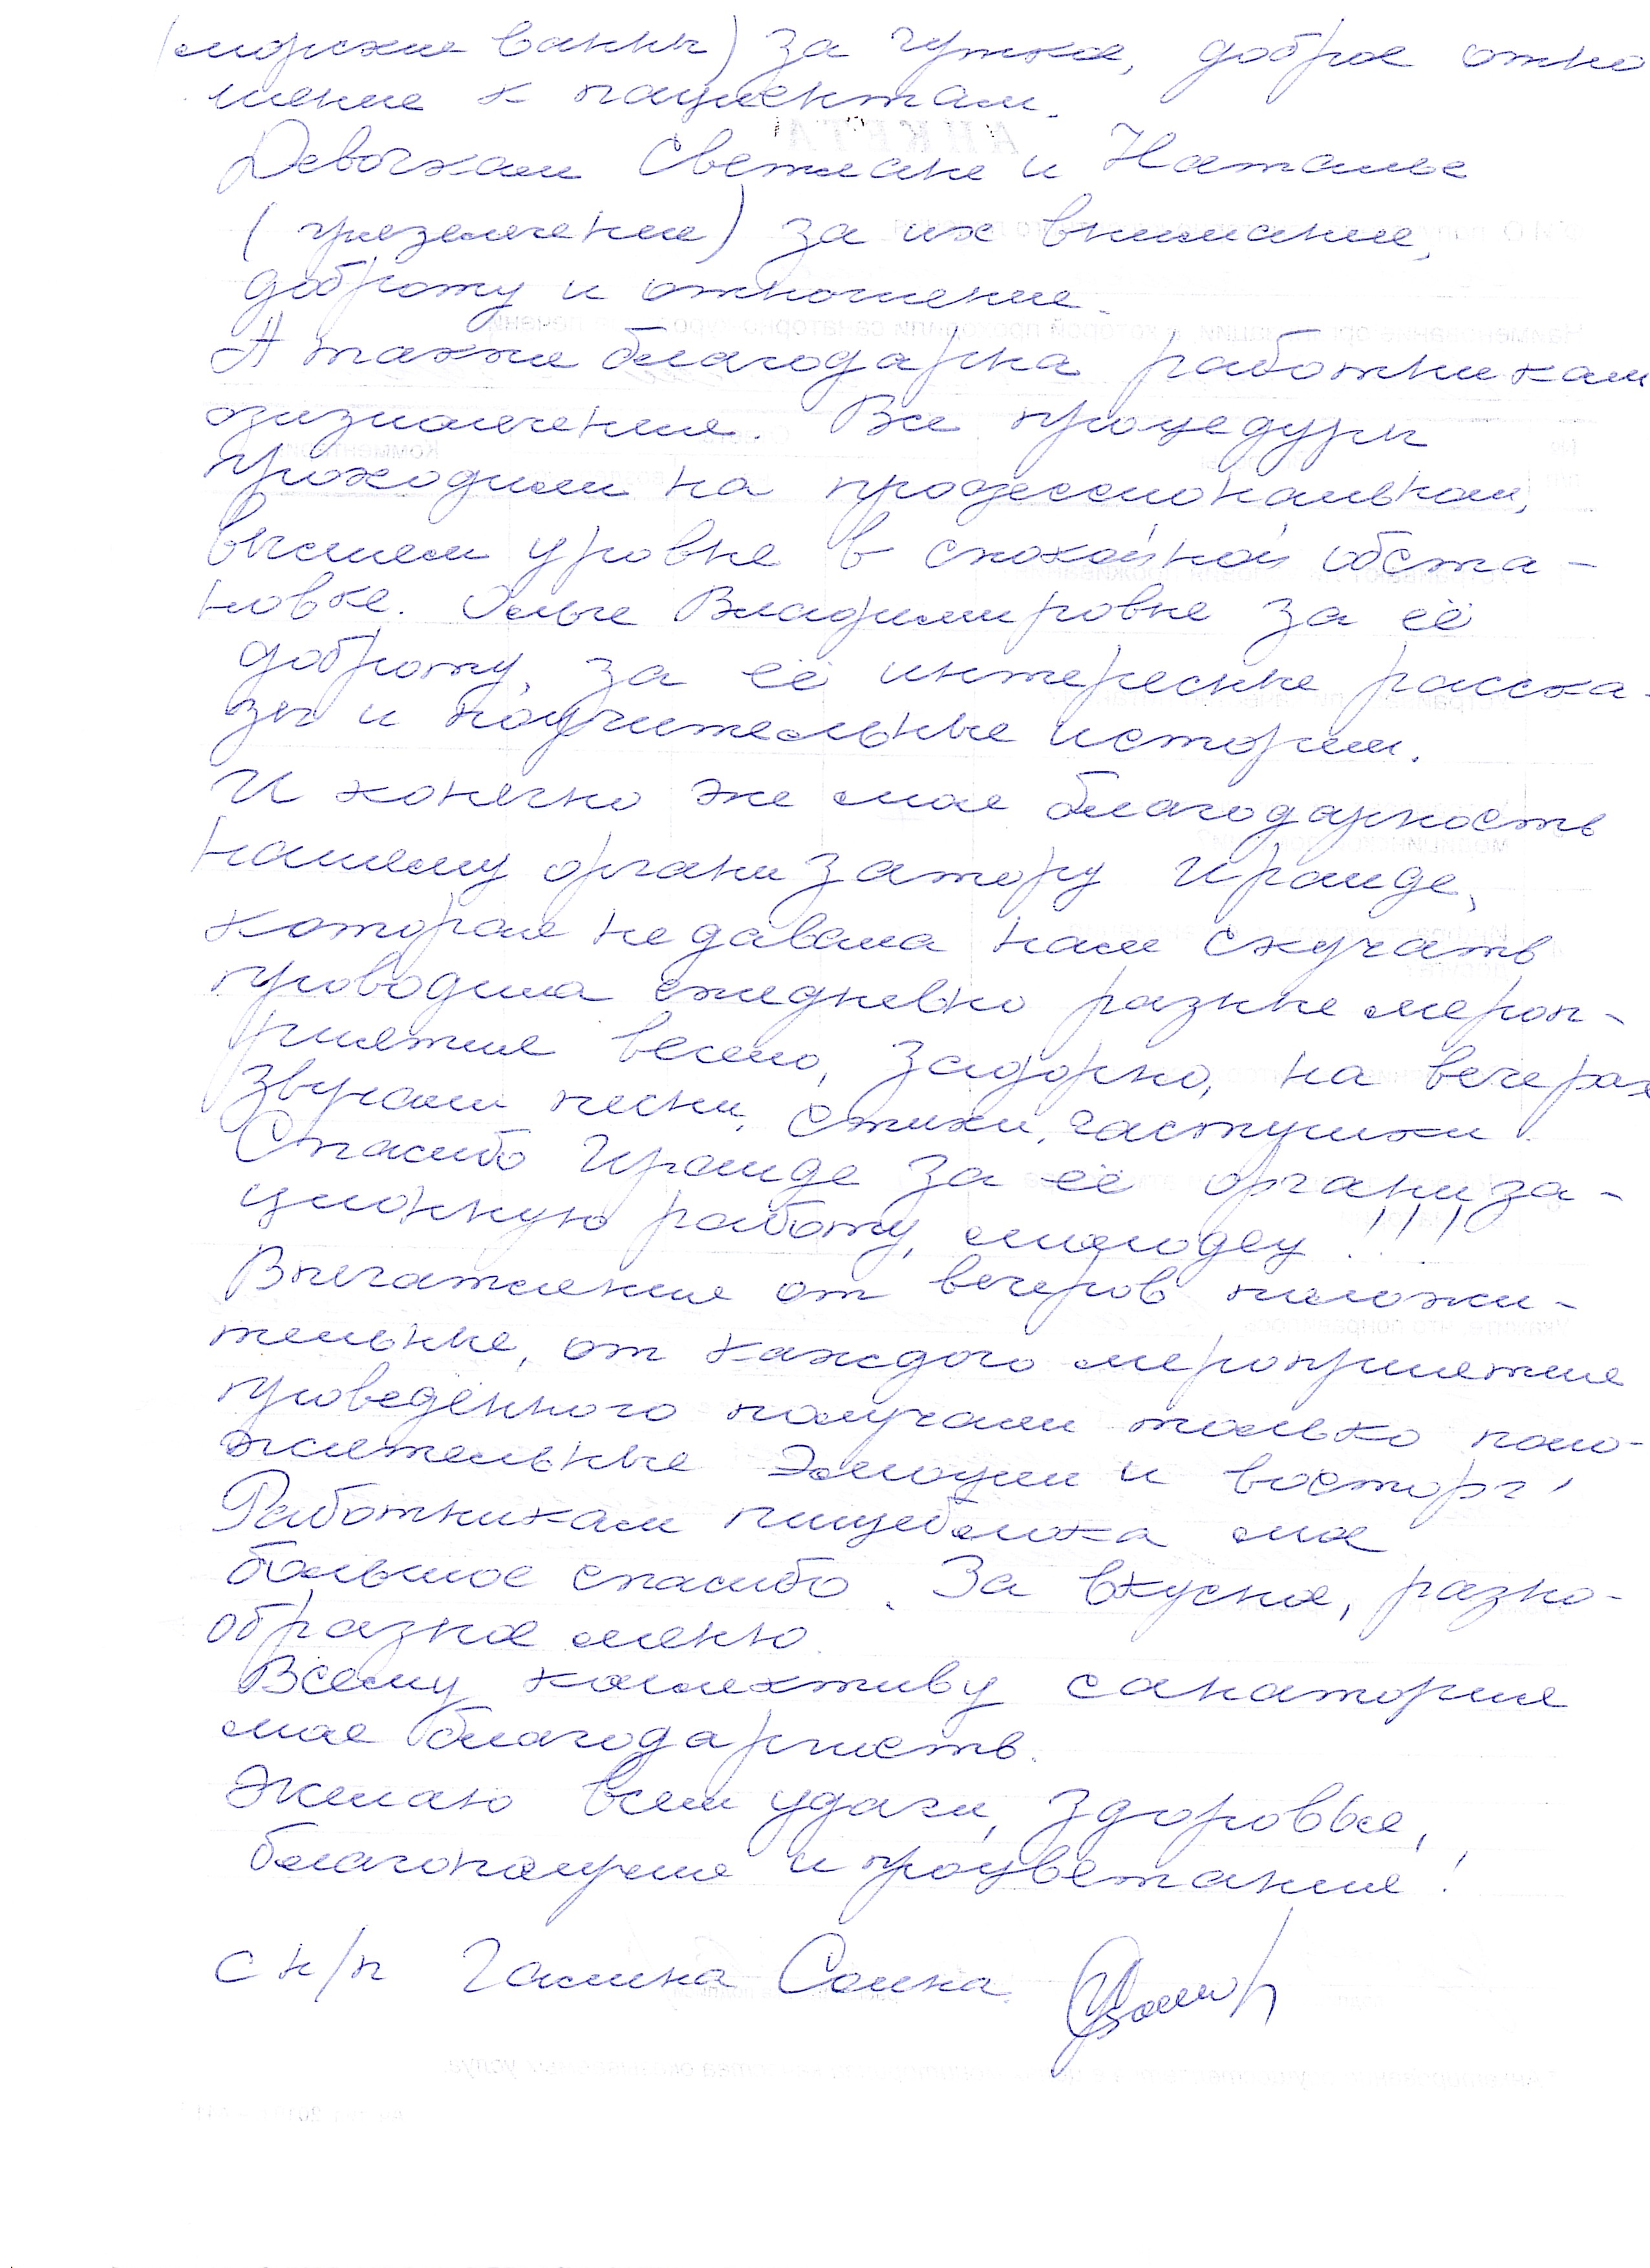 (морские ванны) за чуткое, доброе отно
шение к пациентам.
Девочкам Светлане и Наталье
(грязелечение) за их внимание,
доброту и отношение.
А также благодарна работникам
физиолечения. Все процедуры
проходили на профессиональном,
высшем уровне в спокойной обста-
новке. Ольге Владимировне за её
доброту, за её интересные расска-
зы и поучительные истории.
И конечно же моя благодарность
нашему организатору Ираиде,
которая не давала нам скучать
проводила ежедневно разные мероп-
риятия весело, задорно, на вечерах
звучали песни, стихи, частушки.
Спасибо Ираиде за её организа-
ционную работу, молодец!!!
Впечатления от вечеров положи-
тельные, от каждого мероприятия
проведённого получали только поло-
жительные эмоции и восторг!
Работникам пищеблока мое
большое спасибо. За вкусное, разно-
образное меню.
Всему коллективу санатория
моя благодарность.
Желаю всем удачи, здоровья,
благополучия и процветания!
с н/п Галина